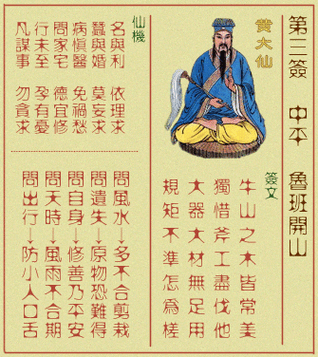 第三簽　中平　魯班開山
黃大仙
簽文
牛山之木皆常美
獨惜斧工盡伐他
大器大材無足用
規矩不準怎為槎
仙機
名與利　依理求
蠶與婚　莫妄求
病慎醫　免禍愁
問家宅　德宜修
行未至　孕有憂
凡謀事　勿貪求
問風水→多不合剪栽
問遺失→原物恐難得
問自身→修善乃平安
問天時→風雨不合期
問出行→防小人口舌